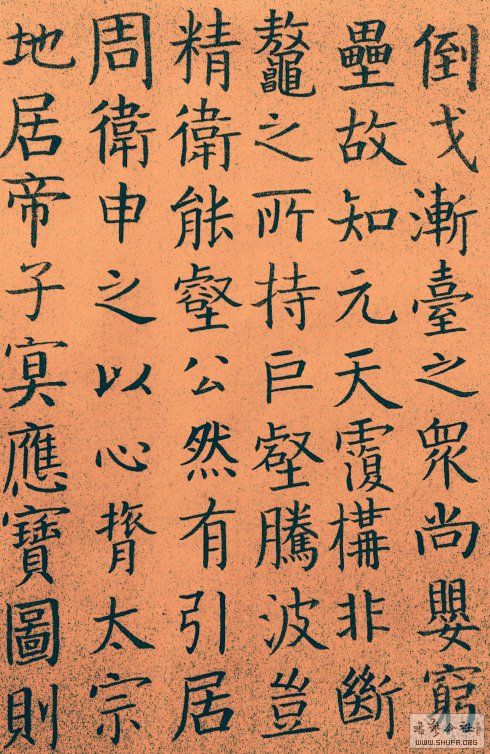 倒戈漸臺之眾尚嬰窮
壘故知元天覆構非斷
鼇之所持巨壑騰波豈
精衛能壑公然有引居
周衛申之以心膂太宗
地居帝子冥應寶圖則
WWW.SHUFA.ORG